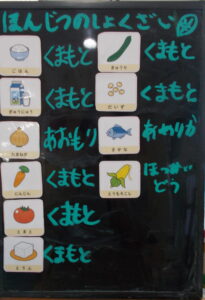 ほんじつのしょくざい
ごはん
くまもと
きゅうり
くまもと
ぎゅうにゅう
くまもと
だいず
くまもと
たまねぎ
あおもり
さかな
あめりか
にんじん
くまもと
とうもろこし
ほっかい
どう
とまと
くまもと
とうふ
くまもと